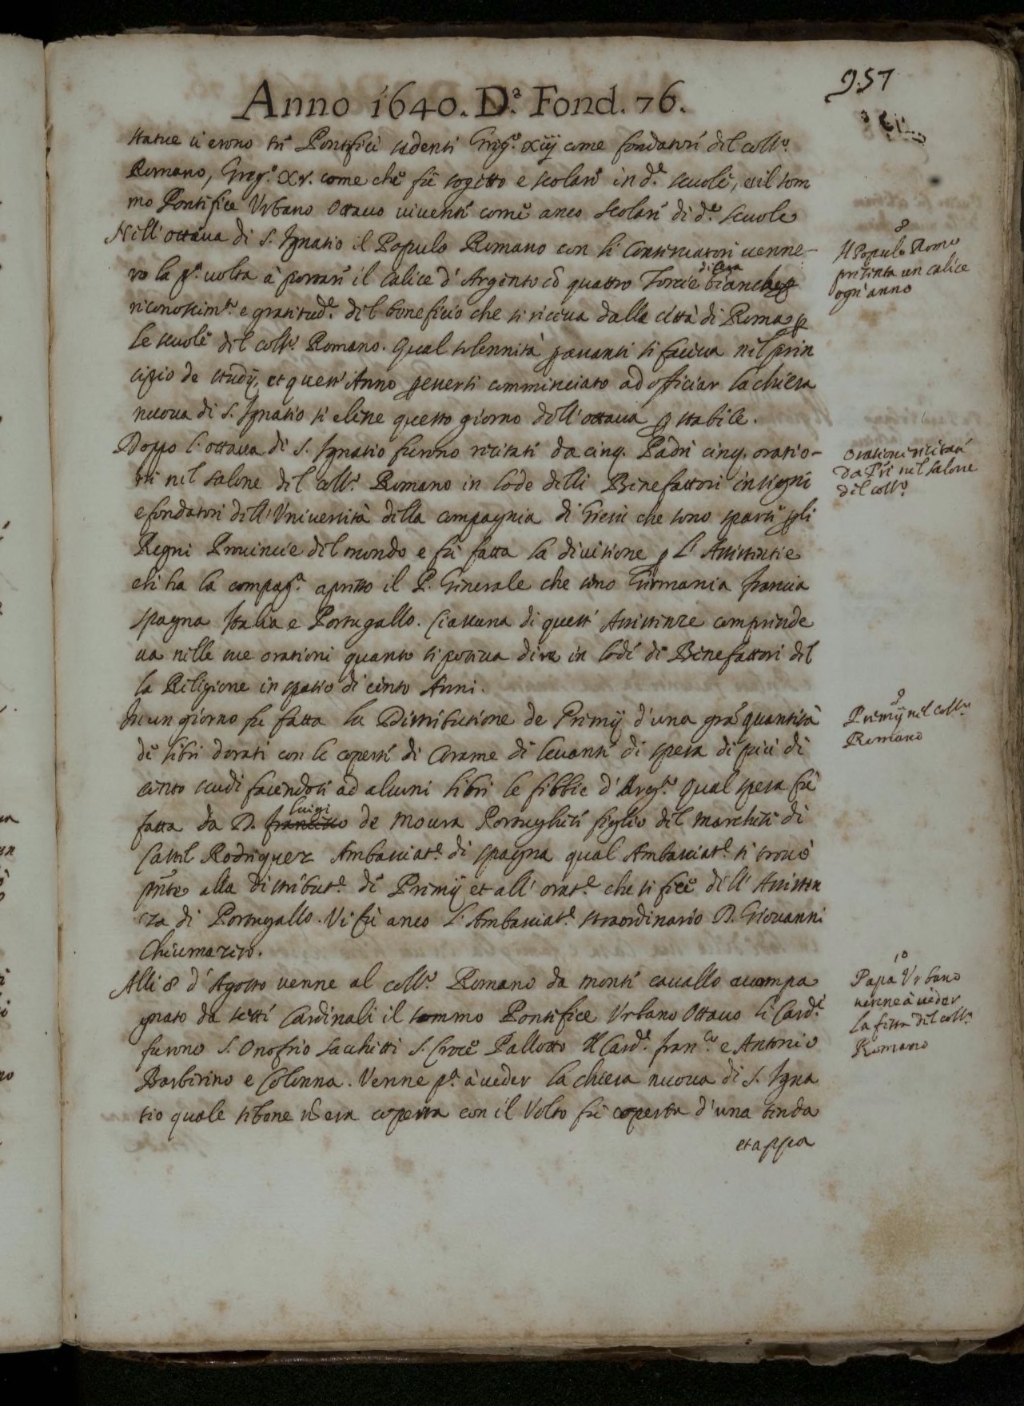 957
Anno 1640. D.ª Fond. 76.
statue vi erono tre Pontifici sedenti Greg.º xiij come fondatore del coll.º
Romano, Greg.º xv. come che fù sogetto e scolare in d.e scuole, et il som
mo Pontifice Urbano Ottavo vivente come anco scolare di d.e scuole
Nell'ottava di S. Ignatio il Populo Romano con li Conservatori venne-
ro la p.ª volta à portare il calice d'Argento cõ quattro Torcie di cera bianche p
riconoscim.to e gratitud.e del beneficio che si riceva dalla città di Roma p
le scuole del coll.º Romano. Qual solennità p avanti si faceva nel prin
cipio de studij, et quest'Anno p eversi comminciato ad officiar la chiesa
nuova di S. Ignatio si elesse questo giorno dell'ottava p stabile.
Doppo l'ottava di S. Ignatio furono recitati da cinq. Padri cinq. oratio-
ni nel salone del coll.º Romano in lode delli Benefattori insigni
e fondatori dell'Università della compagnia di Giesù che sono sparse p li
Regni Provincie del mondo e fù fatta la divisione p l'Assistentie
che ha la compag.ª apresso il P. Generale che sono Germania francia
spagna Italia e Portugallo. Ciascuna di queste Assistenze comprende
va nelle sue orationi quanto si poteva dire in lode de Benefattori del
la Religione in spatio di cento Anni.
In un giorno fu fatta la Distributione de Premij d'una grã quantità
de libri dorati con le coperte di Corame di levante di spesa di più di
cento scudi facendosi ad alcuni libri le fibbie d'Arg.to Qual spesa fù
fatta da D. francisco Luigi de Moura Portughese figlio del Marchese di
Castel Rodriguez Ambasciat.e di spagna qual Ambasciat.e si trovò
pñte alla distribut.e de Premij et all'orat.e che si fece dell'Assisten
za di Portugallo. Vi fù anco l'Ambasciat.e straordinario D. Giovanni
Chiumazzro.
Alli 8 d'Agosto venne al coll.º Romano da monte cavallo accompa
gnato da sette Cardinali il sommo Pontifice Urbano Ottavo li Card.i
furono S. Onofrio Sacchetti S. Croce Pallotto Il Card.e fran.co e Antonio
Barberino e Colonna. Venne p.ª à veder la chiesa nuova di S. Igna
tio quale sibene nõ era coperta con il Volto fù coperta d'una tenda
et appa
8
Il Populo Romo
presenta un calice
ogn'anno
Orationi recitate
da Pri nel salone
del coll.º
9
Premij nel coll.º
Romano
10
Papa Urbano
venne à veder
la festa del coll.º
Romano